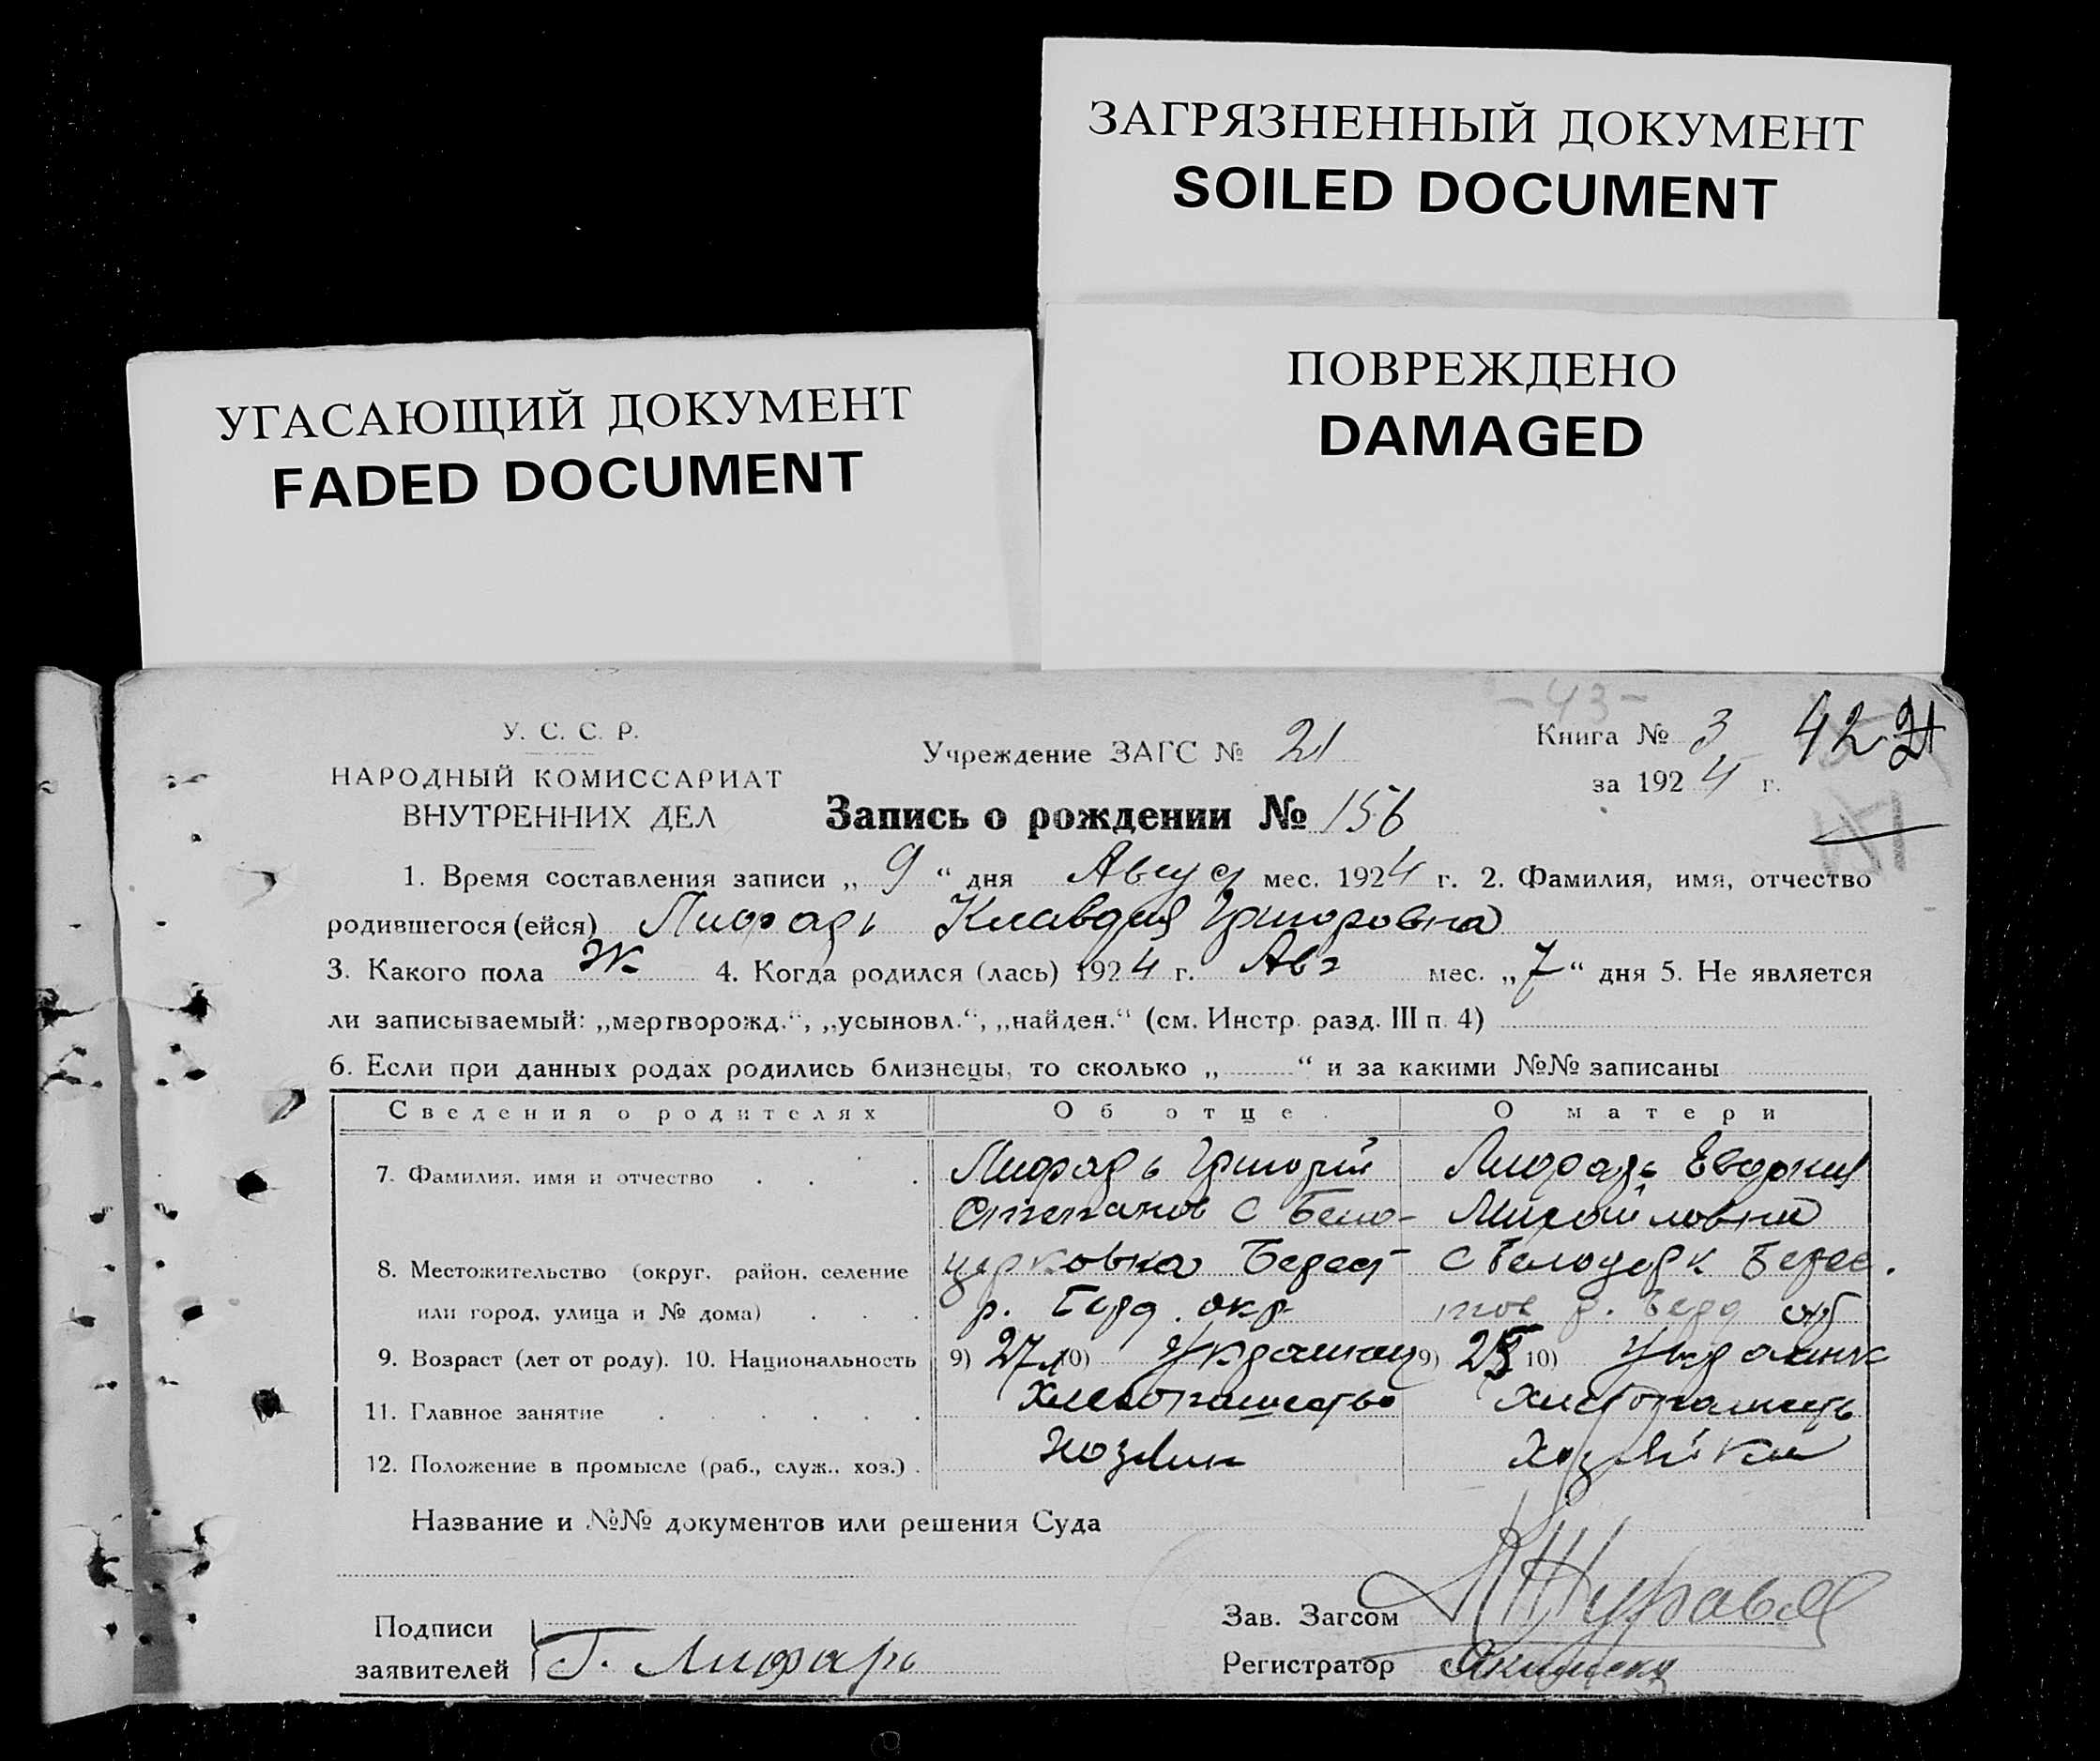 ЗАГРЯЗНЕННЫЙ ДОКУМЕНТ
SOILED DOCUMENT
УГАСАЮЩИЙ ДОКУМЕНТ
FADED DOCUMENT
ПОВРЕЖДЕНО
DAMAGED
-43-
У. С. С. Р.
НАРОДНЫЙ КОМИССАРИАТ
ВНУТРЕННИХ ДЕЛ
Учреждение ЗАГС № 21
Книга № 3 42
за 1924 г.
Запись о рождении № 156
1. Время составления записи „ 9 “ дня Август мес. 1924 г. 2. Фамилия, имя, отчество
родившегося (ейся) Лифарь Клавдия Григоровна
3. Какого пола Ж 4. Когда родился (лась) 1924 г. Авг мес. „7“ дня 5. Не является
ли записываемый: „мертворожд.“, „усыновл.“, „найден.“ (см. Инстр. разд. III п. 4)
6. Если при данных родах родились близнецы, то сколько „ “ и за какими №№ записаны
Сведения о родителях Об отце. О матери
7. Фамилия, имя и отчество Лифарь Григорий Лифарь
Степанов С Бело- Михайловна
8. Местожительство (округ, район, селение церковка Берест с Белоцерк Берес.
или город, улица и № дома) р. Берд. окр тов р. Берд окр
9. Возраст (лет от роду). 10. Национальность 9) 27 10) Украинец 9) 10) Украинк
11. Главное занятие Хлебопашество Хлебопашеств
12. Положение в промысле (раб., служ., хоз.) Хозяин Хозяйка
Название и №№ документов или решения Суда
Подписи
заявителей Г. Лифарь
Зав. Загсом
Регистратор